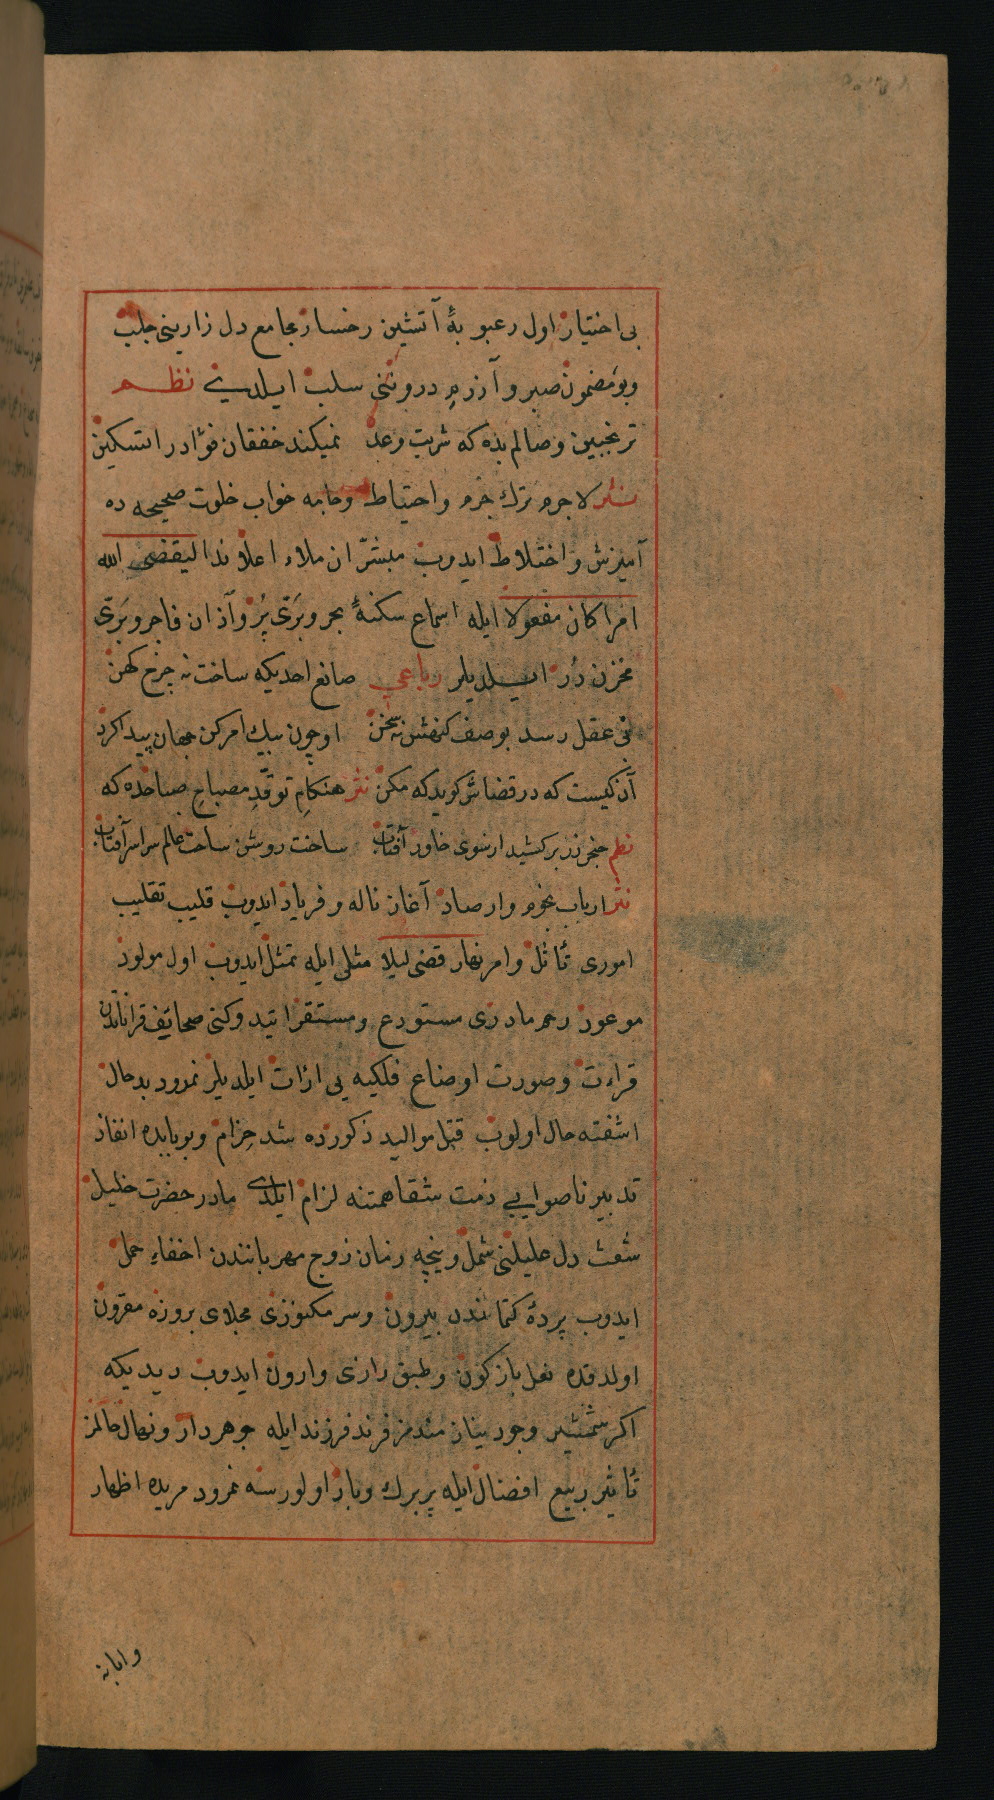 بی اختیار اول رعبوبهٔ آتشین رخسار مجامع دل زارینی جلب
وبو مضمون صبر وآزرم دروننی سلب ایلدی نظم
ترنجبین وصالم بده که شربت وعد نمیکند خفقان فؤادرا تسکین
نثر لاجرم ترك حزم واحتیاط وجامه خواب خلوت صحیحه ده
آمیزش واختلاط ایدوب مبشران ملاء اعلا ندا لیقضی الله
امرا کان مفعولا ایله اسماع سکنهٔ بحر وبرّی پُر وآذان فاجر وبَرّی
مخزن دُرّ ایلدیلر رباعی صانع احدیکه ساخت نه چرخ کهن
نی عقل رسد بوصف کنهش نه سخن اوچون بیك امر کن جهان پیدا کرد
آن کیست که در قضاش کوید که مکن نثر هنکام توقّد مصباح صباحده که
نظم خنجر زر برکشید از سوی خاور آفتاب ساخت روشن ساحت عالم سراسر آفتاب
نثر ارباب نجوم وارصاد آغاز ناله وفریاد ایدوب قلیب تقلیب
اموری تأثل وامر نهار قضی لیلا مثلی ایله تمثل ایدوب اول مولود
موعود رحم مادری مستودع ومستقر ایتدوکنی صحایف قراناتدن
قراءت وصورت اوضاع فلکیه یی ارائت ایلدیلر نمرود بدحال
اشفته حال اولوب قتل موالید ذکورده شد حزام وبو بابده انفاذ
تدبیر ناصوابیی ذمت شقاهمتنه لزام ایلدی مادر حضرت خلیل
شعث دل علیلنی شمل ونیچه زمان زوج مهربانندن اخفاء حمل
ایدوب پردهٔ کتماندن بیرون وسر مکنونزی مجلای بروزه مقرون
اولدقده نعل باژکون وطبق رازی وارون ایدوب دیدیکه
اکر شمشیر وجود بینازمندمز فرند فرزند ایله جوهردار ونهال حالمز
تأثیر ربیع افضال ایله پربرك وبار اولورسه نمرود مریده اظهار
وابانه